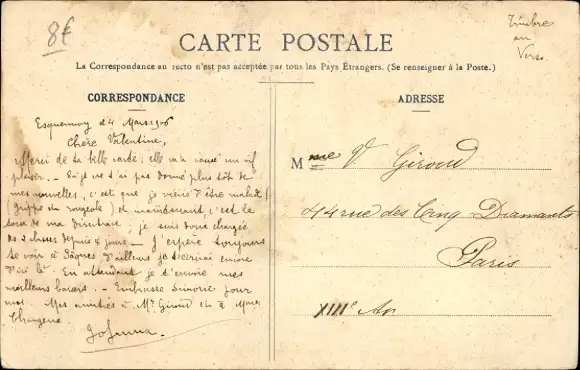 8€
Timbre
au
Verso
CARTE POSTALE
La Correspondance au recto n'est pas acceptée par tous les Pays Étrangers. (Se renseigner à la Poste.)
CORRESPONDANCE
Esquennoy 24 Mars 1906
Chère Valentine,
Merci de ta belle carte; elle m'a causé un vif
plaisir. - Si je ne t'ai pas donné plus tôt de
mes nouvelles, c'est que je viens d'être malade
(grippe ou rougeole) et maintenant c'est le
tour de ma directrice; je suis donc chargée
des 2 classes depuis 4 jours - J'espère toujours
te voir à Pâques, d'ailleurs je t'écrirai encore
d'ici là. En attendant je t'envoie mes
meilleurs baisers. - Embrasse Simone pour
moi. Mes amitiés à Mr Giroud et à
Johanna.
ADRESSE
Mme V. Giroud
44 rue des Cinq Diamants
Paris
XIIIe Ar